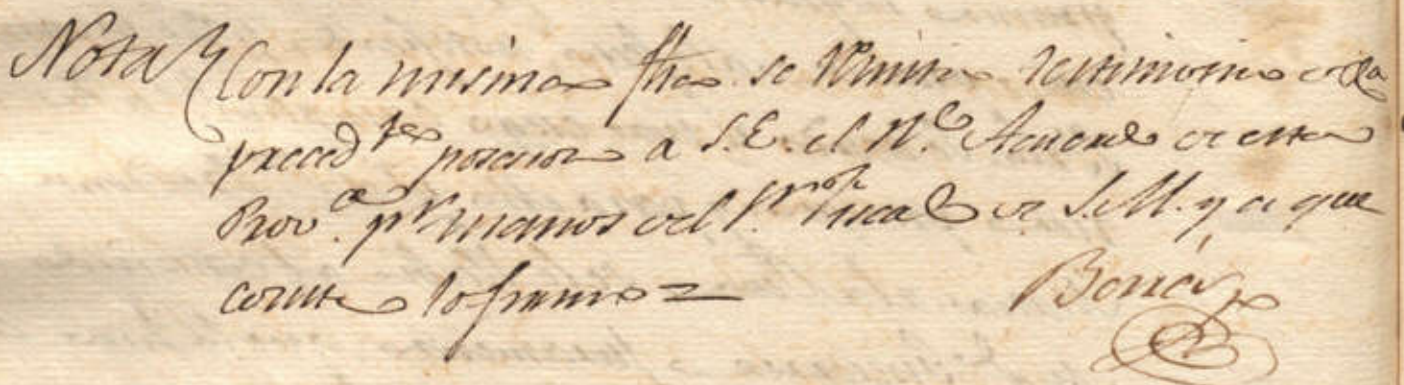 Nota Con la misma fha. se remitio testimonio de la
preced.te posesion a S.E. el R.l Acuerdo de esta
Prov.a p.r manos del S.or Fiscal de S.M. y a que
conste lo firmo =